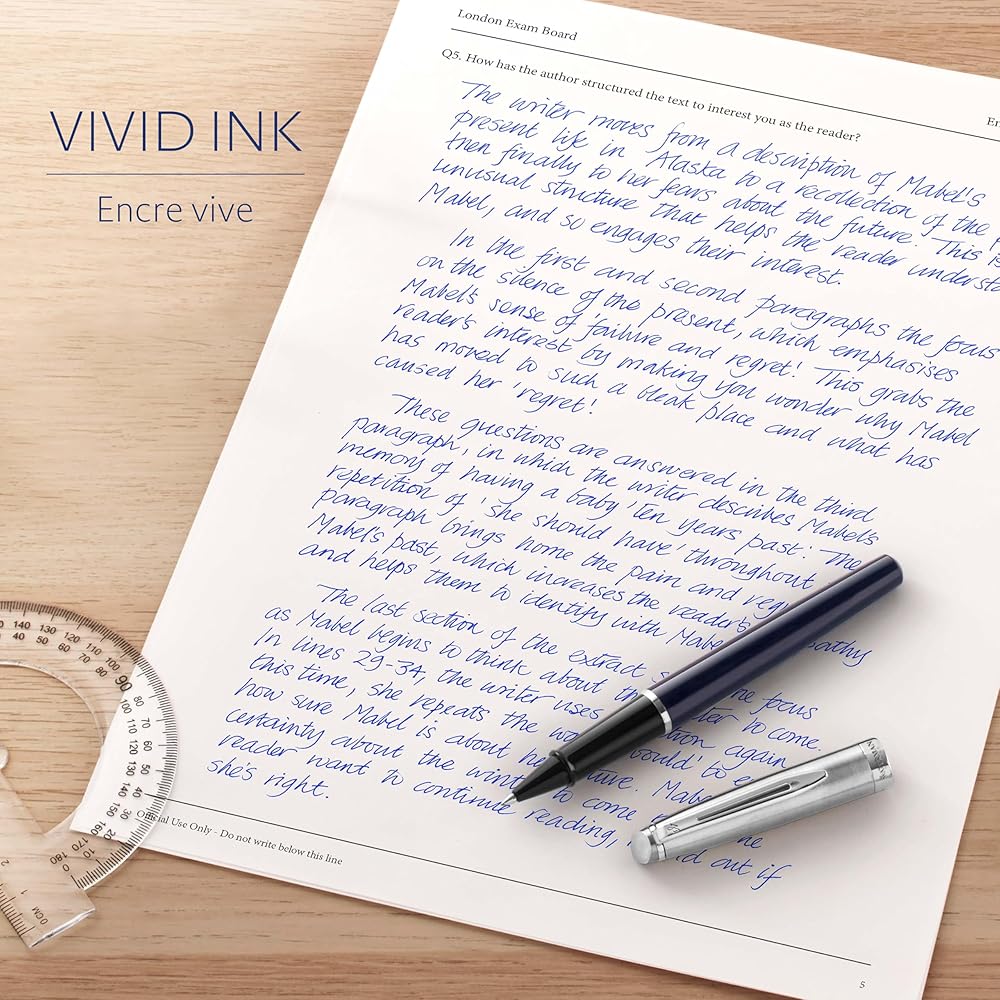 VIVID INK
Encre vive
London Exam Board
Q5. How has the author structured the text to interest you as the reader?
The writer moves from a description of Mabel's
present life in Alaska to a recollection of the
then finally to her fears about the future. This is
unusual structure that helps the reader understa
Mabel, and so engages their interest.
In the first and second paragraphs the focus
on the silence of the present, which emphasises
Mabel's sense of failure and regret! This grabs the
reader's interest by making you wonder why Mabel
has moved to such a bleak place and what has
caused her 'regret!
These questions are answered in the third
paragraph, in which the writer describes Mabel's
memory of having a baby 'ten years past.' The
repetition of 'she should have' throughout
paragraph brings home the pain and reg
Mabel's past, which increases the reader's pathy
and helps them to identify with Mabe
The last section of the extract focus
as Mabel begins to think about to come.
In lines 29-34, the writer uses again
this time, she repeats the 'would' to
how sure Mabel is about
certainty about the to come
reader want to continue reading, out if
she's right.
Official Use Only - Do not write below this line
5